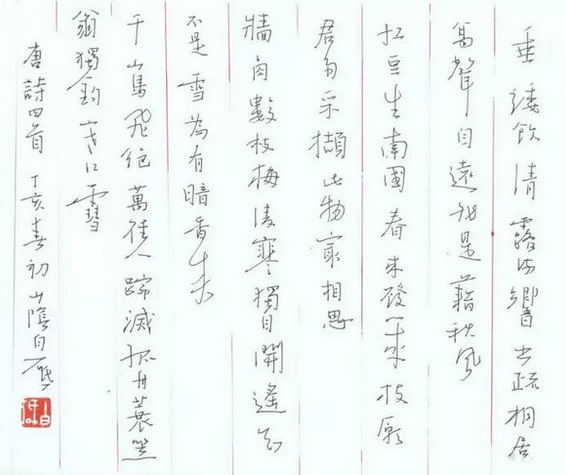 垂緌飲清露流響出疏桐居
高聲自遠非是藉秋風
紅豆生南國春來發幾枝願
君多采擷此物最相思
牆角數枝梅凌寒獨自開遙知
不是雪為有暗香來
千山鳥飛絕萬徑人蹤滅孤舟蓑笠
翁獨釣寒江雪
唐詩四首丁亥春初山陰白